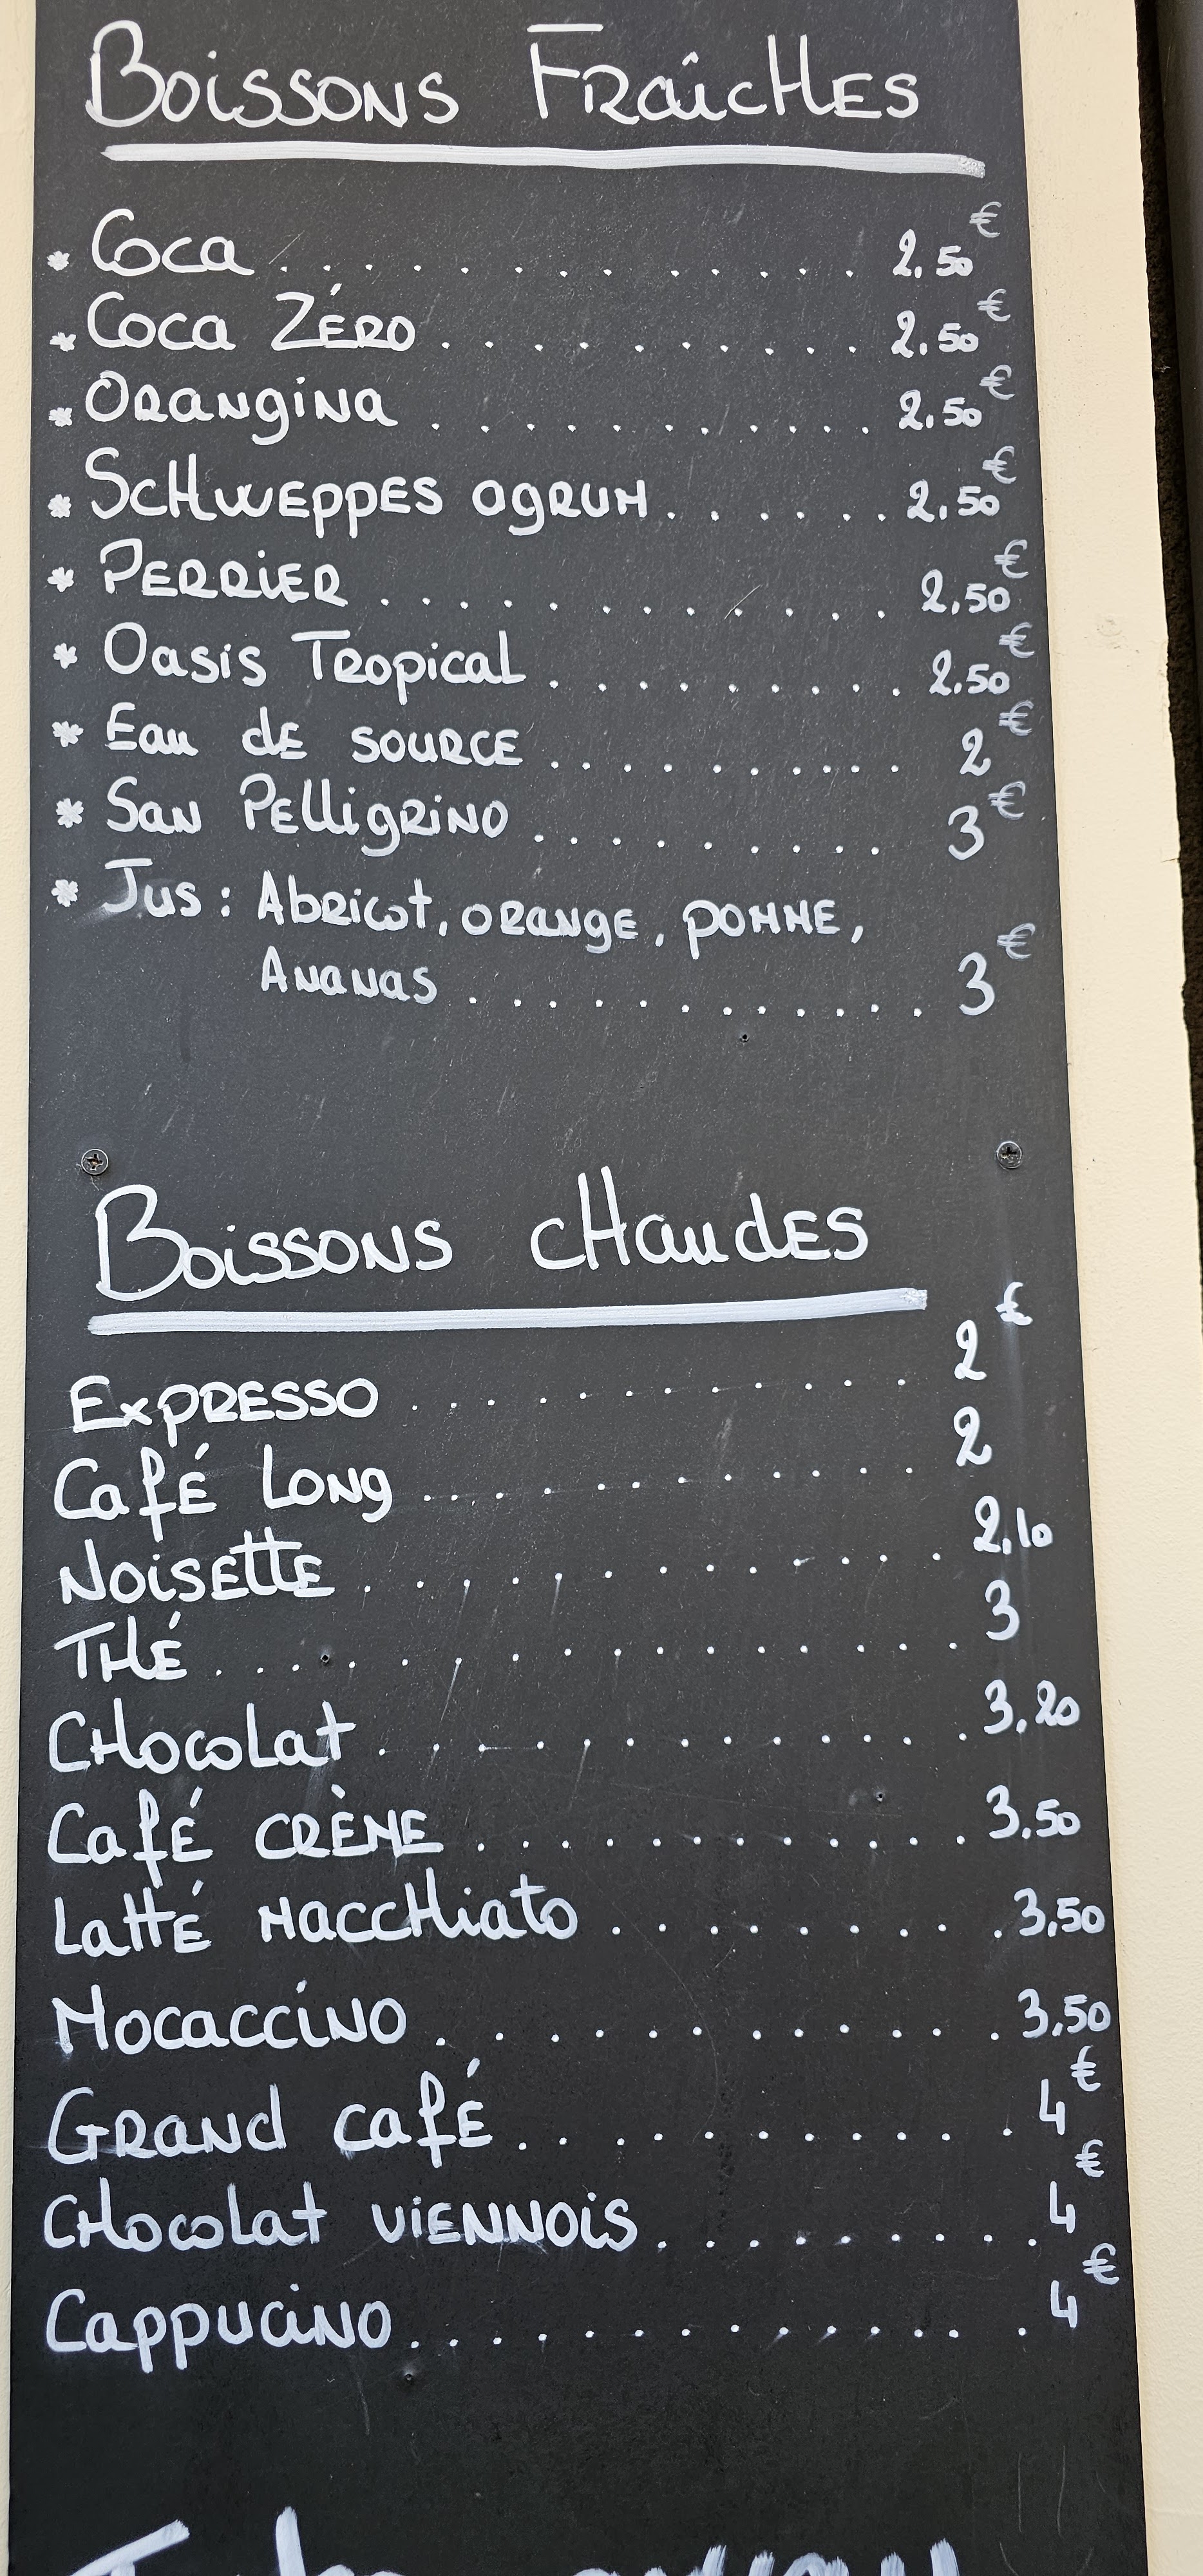 Boissons Fraîches
* Coca . . . . . . . . . . . . . . 2.50€
* Coca Zéro . . . . . . . . . . 2.50€
* Orangina . . . . . . . . . . . 2.50€
* Schweppes agrum . . . . . . 2.50€
* Perrier . . . . . . . . . . . . 2.50€
* Oasis Tropical . . . . . . . . . 2.50€
* Eau de source . . . . . . . . . 2€
* San Pelligrino . . . . . . . . . 3€
* Jus : Abricot, orange, pomme,
Ananas . . . . . . . . . . . 3€
Boissons chaudes
Expresso . . . . . . . . . . 2€
Café Long . . . . . . . . . . 2
Noisette . . . . . . . . . . . 2,10
Thé . . . . . . . . . . . . . . 3
Chocolat . . . . . . . . . . . . 3.20
Café crème . . . . . . . . . . . 3.50
Latté Macchiato . . . . . . . . . 3,50
Mocaccino . . . . . . . . . . . 3,50
Grand café . . . . . . . . . . . 4€
Chocolat viennois . . . . . . . . . 4€
Cappucino . . . . . . . . . . . . . 4€